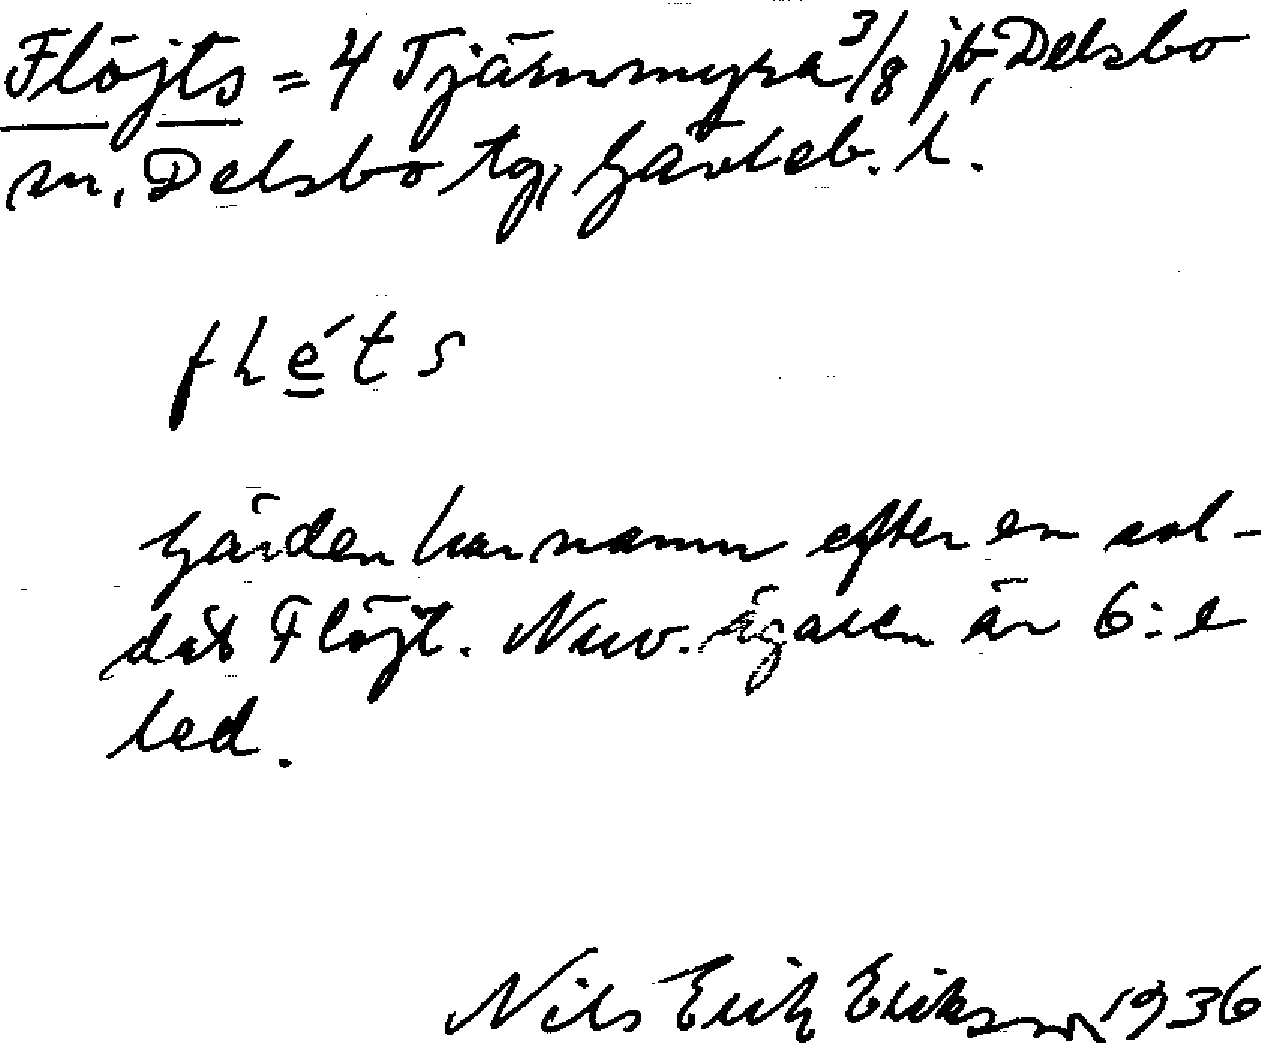 Flöjts = 4 Tjärnmyra 3/8 jb, Delsbo
sn, Delsbo tg, Gävleb. l.
fléts
Gården har namn efter en sol-
dat Flöjt. Nuv. ägaren är 6:e
led.
Nils Erik Eriksson 1936